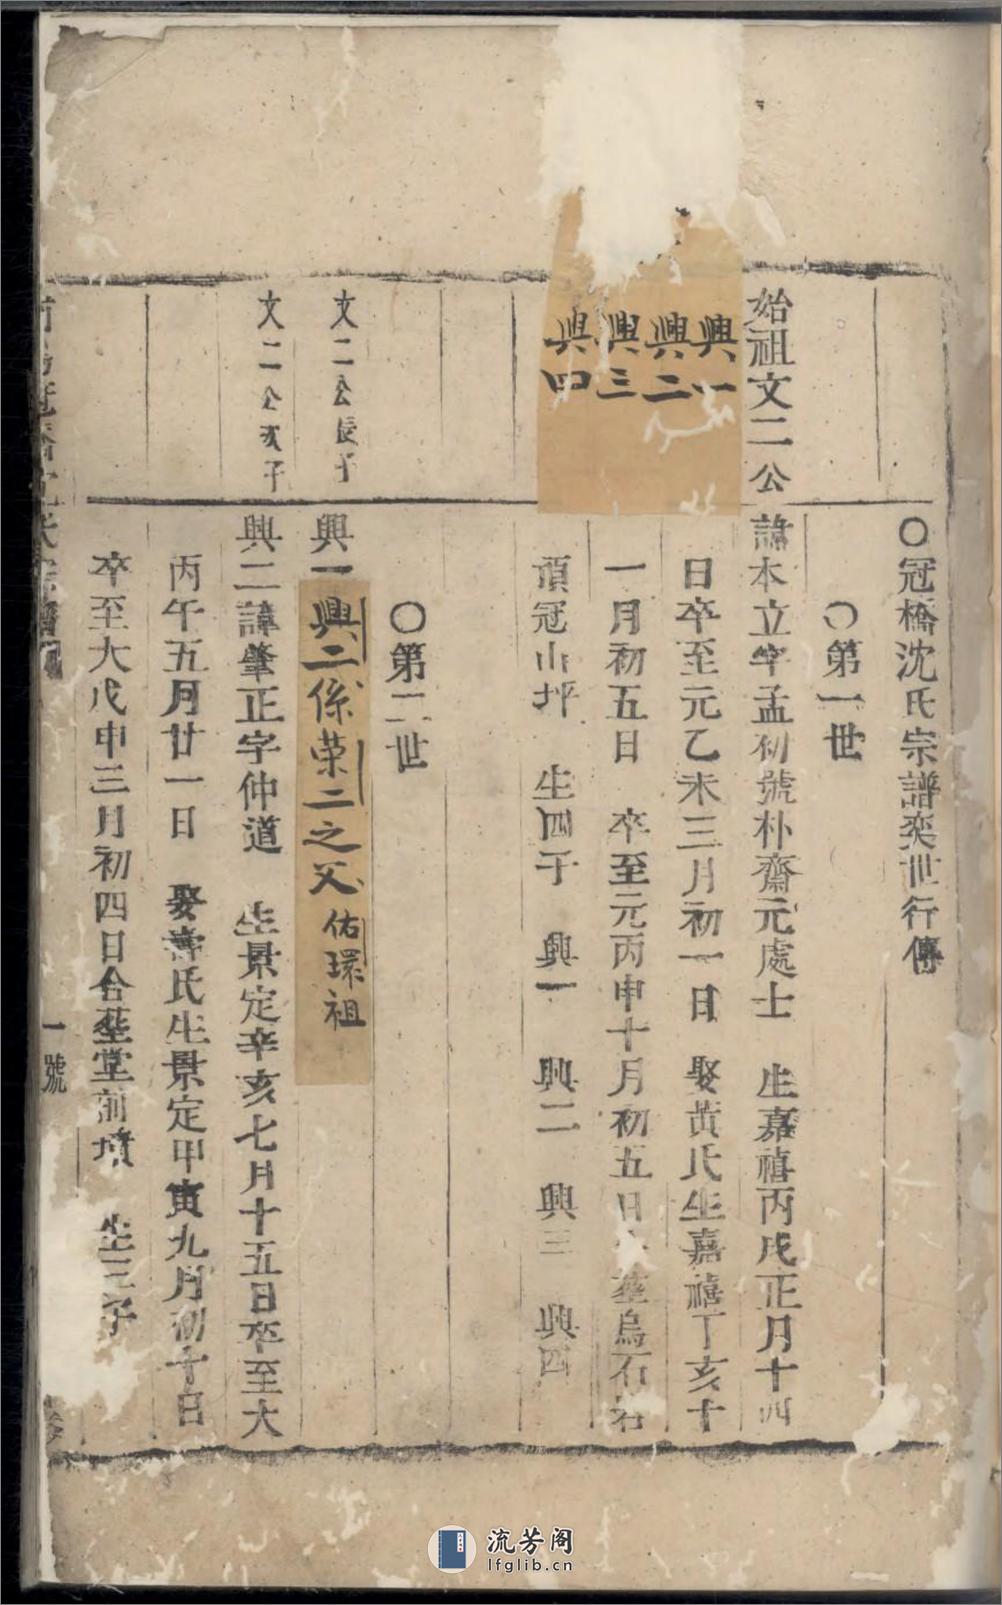 ○冠橋沈氏宗譜奕世行傳
○第一世
始祖文二公
諱本立字孟初號朴齋元處士 生嘉禧丙戌正月十四
日卒至元乙未三月初一日 娶黃氏生嘉禧丁亥十
一月初五日 卒至元丙申十月初五日 塟烏石岩
頂冠山坪 生四子 興一 興二 興三 興四
興一
興二
興三
興四
○第二世
文二公長子
興一
興二係荣二之父 佑環祖
文二公次子
興二諱肇正字仲道 生景定辛亥七月十五日卒至大
丙午五月廿一日 娶 氏生景定甲寅九月初十日
卒至大戊申三月初四日合塟堂前墳 生三子
冠橋沈氏宗譜
一號
流芳阁
lfglib.cn